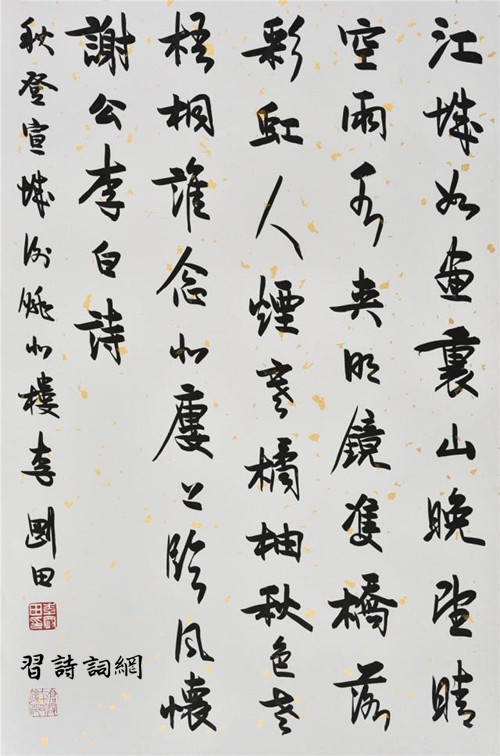 江城如畫裏山晚望晴
空雨水夾明鏡雙橋落
彩虹人煙寒橘柚秋色老
梧桐誰念北樓上臨風懷
謝公李白詩
秋登宣城謝朓北樓李剛田
習詩詞網